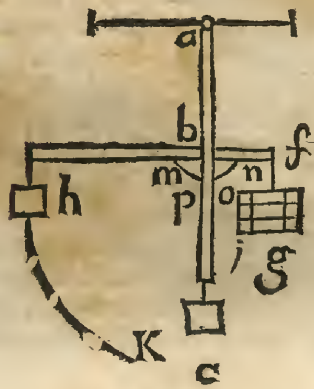 a
b f
m n
h p o
j g
K
c